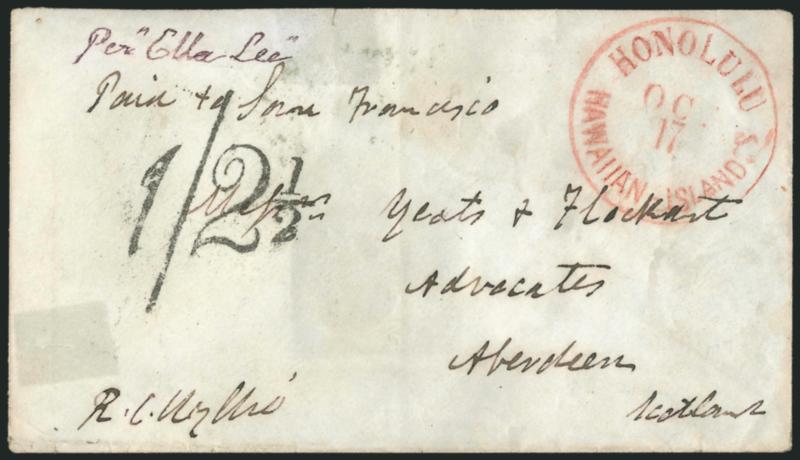 Per "Ella Lee"
Paid to San Francisco
HONOLULU
OC
17
HAWAIIAN ISLANDS
1/2½
Messrs Yeats & Flockart
Advocates
Aberdeen
R. C. Wyllie
Scotland